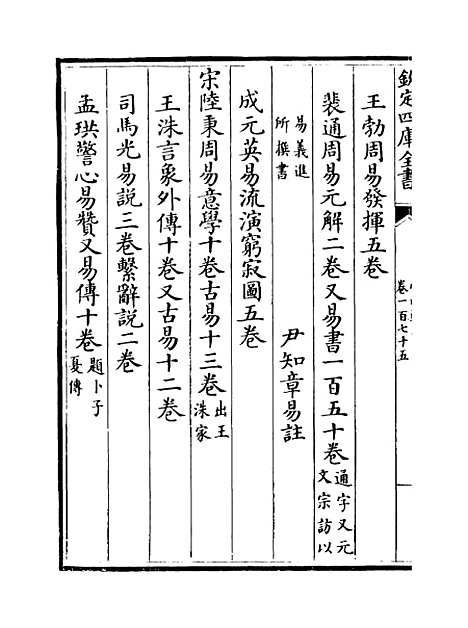 欽定四庫全書
卷一百七十五
王勃周易發揮五卷
裴通周易元解二卷又易書一百五十卷通字又元文宗訪以
易義進所撰書 尹知章易註
成元英易流演窮寂圖五卷
宋陸秉周易意學十卷古易十三卷出王洙家
王洙言象外傳十卷又古易十二卷
司馬光易說三卷繫辭說二卷
孟珙警心易贊又易傳十卷題卜子夏傳